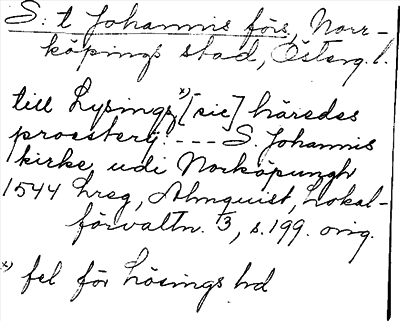 S:t Johannis förs, Norr-
köpings stad, Österg. l.
till Lysings x) [sic] häredes
prossterij --- S. Johannis
kirke udi Norköpungh
1544 hreg, Almquist, Lokal-
förvaltn. 3, s. 199. orig.
x) fel för Lösings hd